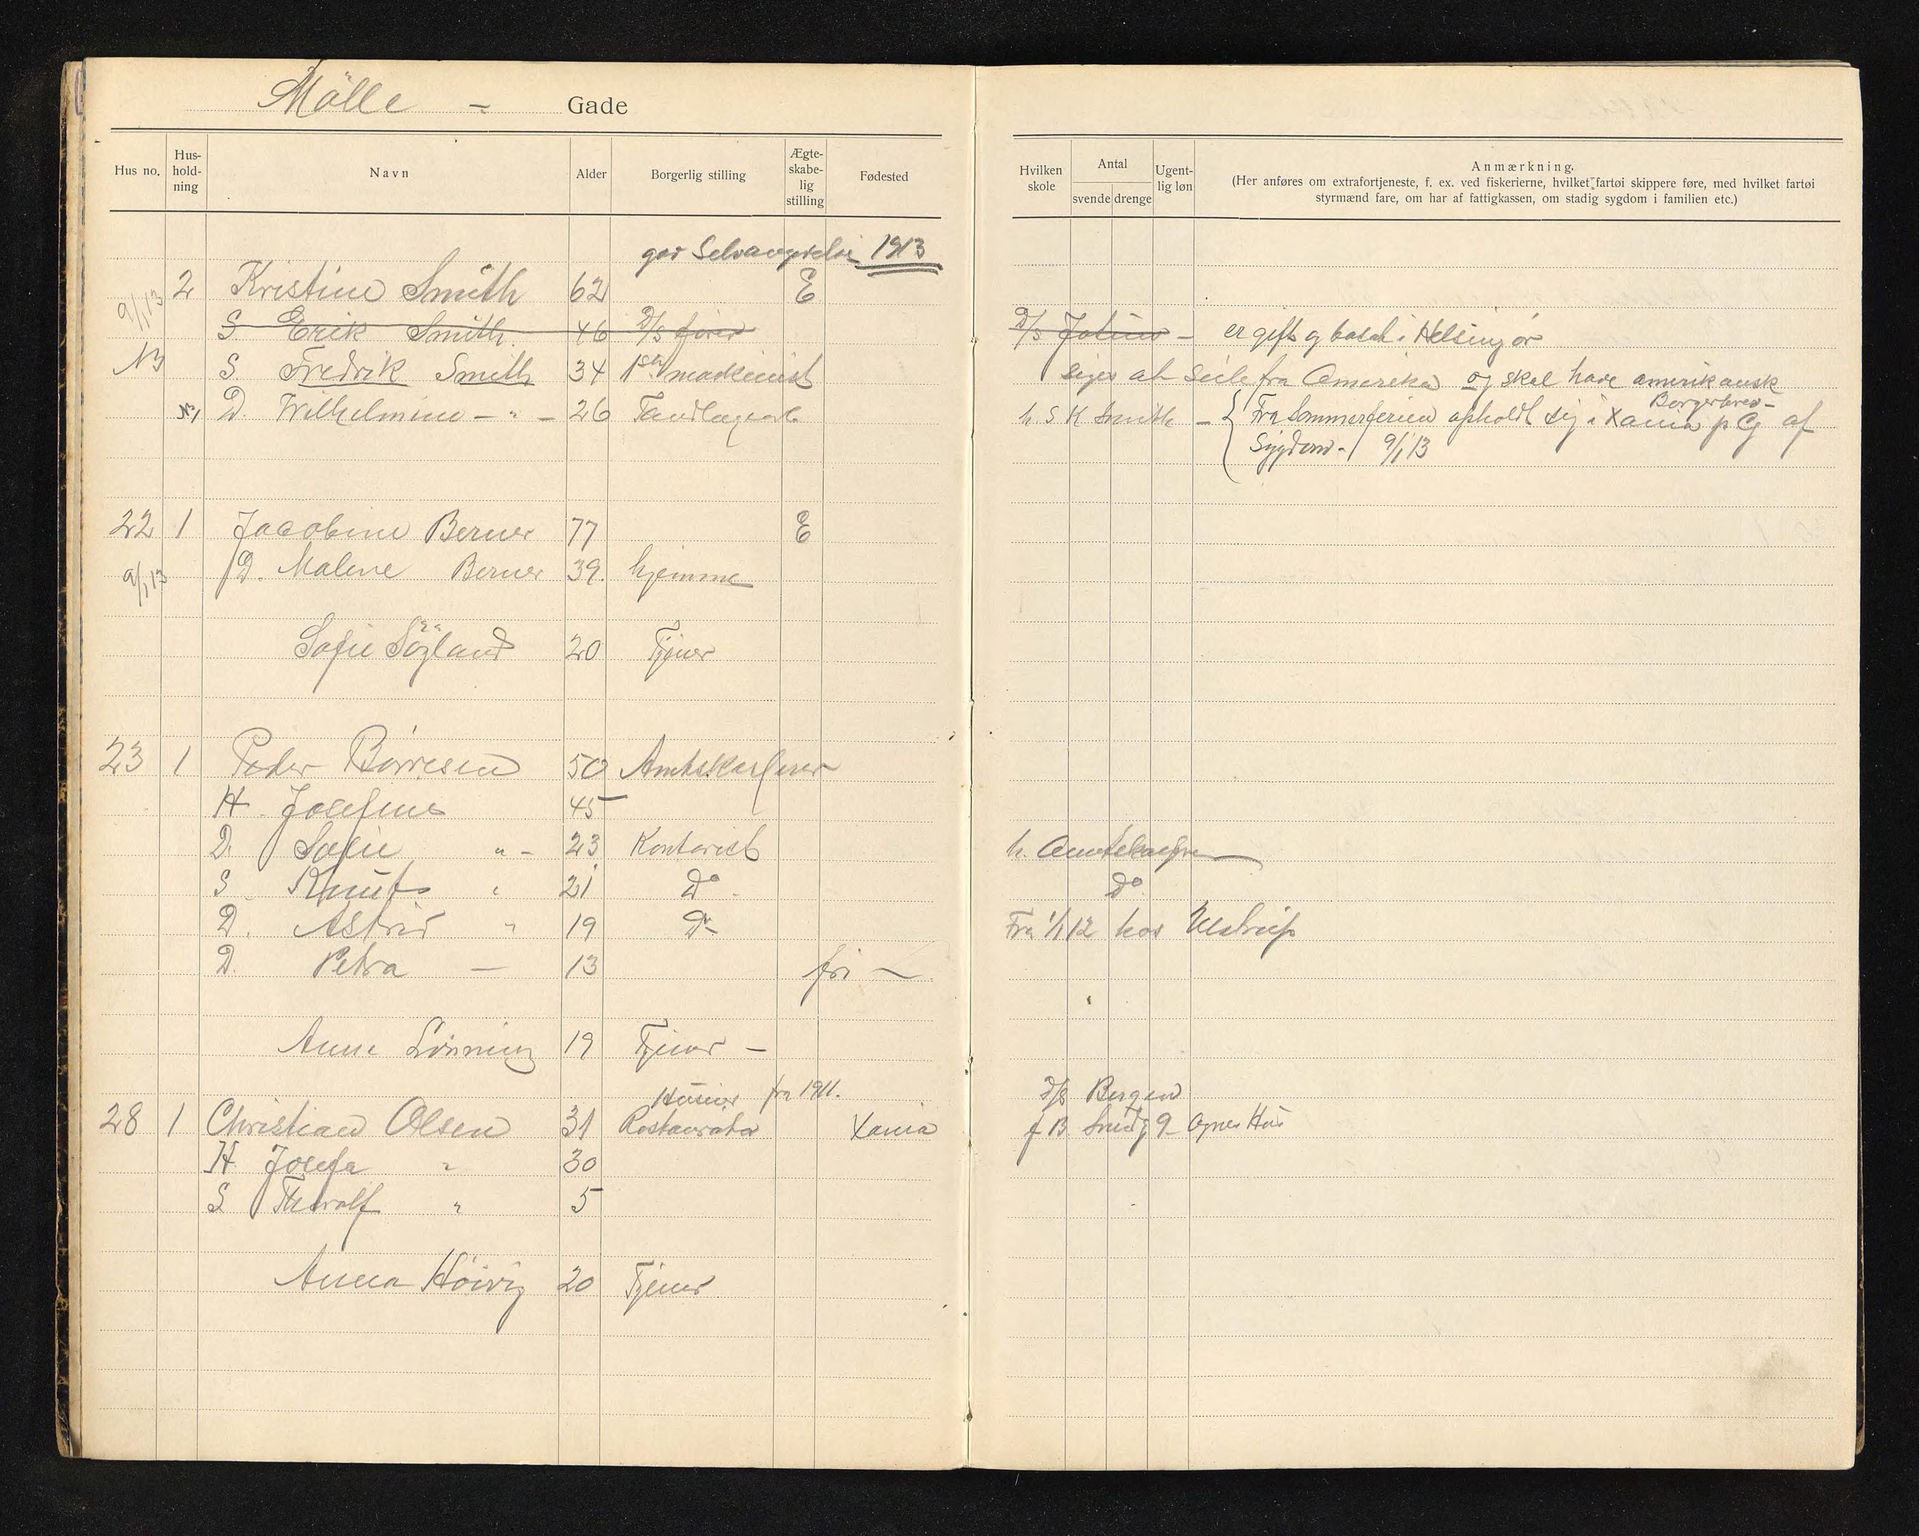 Mölle - Gade
Hus no. Hus-hold-ning Navn Alder Borgerlig stilling Ægte-skabe-lig stilling Fødested
Hvilken skole Antal svende drenge Ugent-lig løn Anmærkning.
(Her anføres om extrafortjeneste, f. ex. ved fiskerierne, hvilket fartøi skippere føre, med hvilket fartøi
styrmænd fare, om har af fattigkassen, om stadig sygdom i familien etc.)
gør Selvangivelse 1913
9/1 13 2 Kristine Smith 62 E
S Erik Smith. 46 D/S fører D/S - er gift og bosat i Helsingør
N3 S. Fredrik Smith 34 1ste maskinist siges at seile fra Amerika og skal have amerikansk
Borgerbrev -
D. Wilhelmine - " - 26 Tandlægeass h S K Smith - Fra Sommerferien opholdt sig i Xania p G af
Sygdom - 9/1 13
22 1 Jacobine Berner 77 E
9/1 13 D. Malene Berner 39. hjemme
Sofie Sögland 20 Tjener
23 1 Peder Börresen 50 Amtskasserer
H. Josefine 45
D. Sofie " - 23 Kontorist h. Amtskasseren
S. Knut " 21 Do. Do
D. Astrid " 19 Do Fra 1/1 12 hos Ulstrup
D. Petra - 13 fri -
Anne Lönning 19 Tjener -
Hushier fra 1911. D/S Bergen
28 1 Christian Olsen 31 Restauratør Xania f 13 Smidg 9 - Agnes Hus
H Josefa " 30
S Thoralf " 5
Anna Höivig 20 Tjener